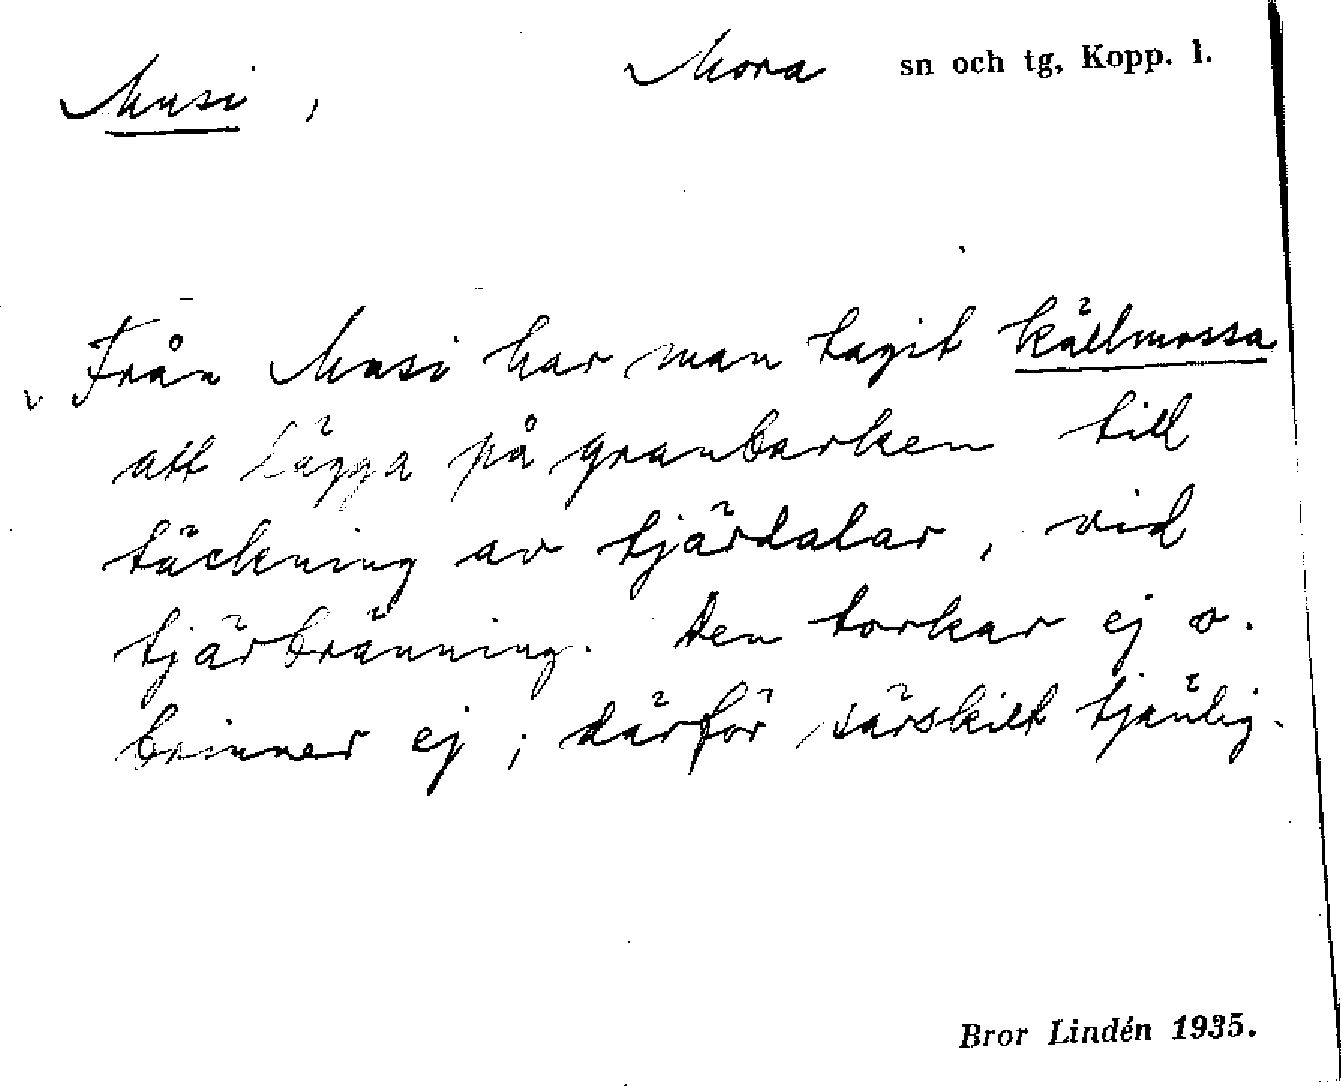 Musi, Mora sn och tg, Kopp. l.
Från Musi har man tagit källmossa
att lägga på granbarken till
täckning av tjärdalar, vid
tjärbränning. Den torkar ej o.
brinner ej; därför särskilt tjänlig.
Bror Lindén 1935.